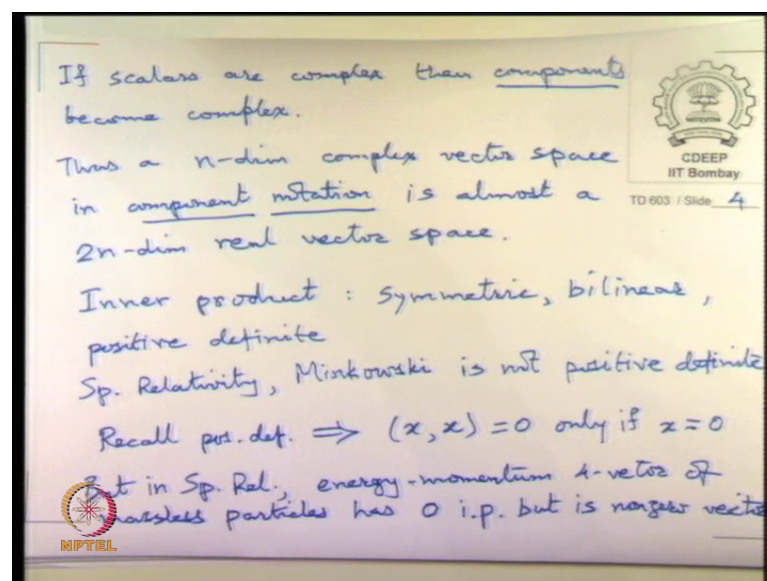 If scalars are complex then components
become complex.
CDEEP
IIT Bombay
Thus a n-dim complex vector space
in component notation is almost a
TD 603 / Slide 4
2n-dim real vector space.
Inner product : symmetric, bilinear,
positive definite
Sp. Relativity, Minkowski is not positive definite
Recall pos. def. ⟹ (x, x) = 0 only if x = 0
But in Sp. Rel., energy-momentum 4-vetor of
massless particles has 0 i.p. but is nonzero vector
NPTEL